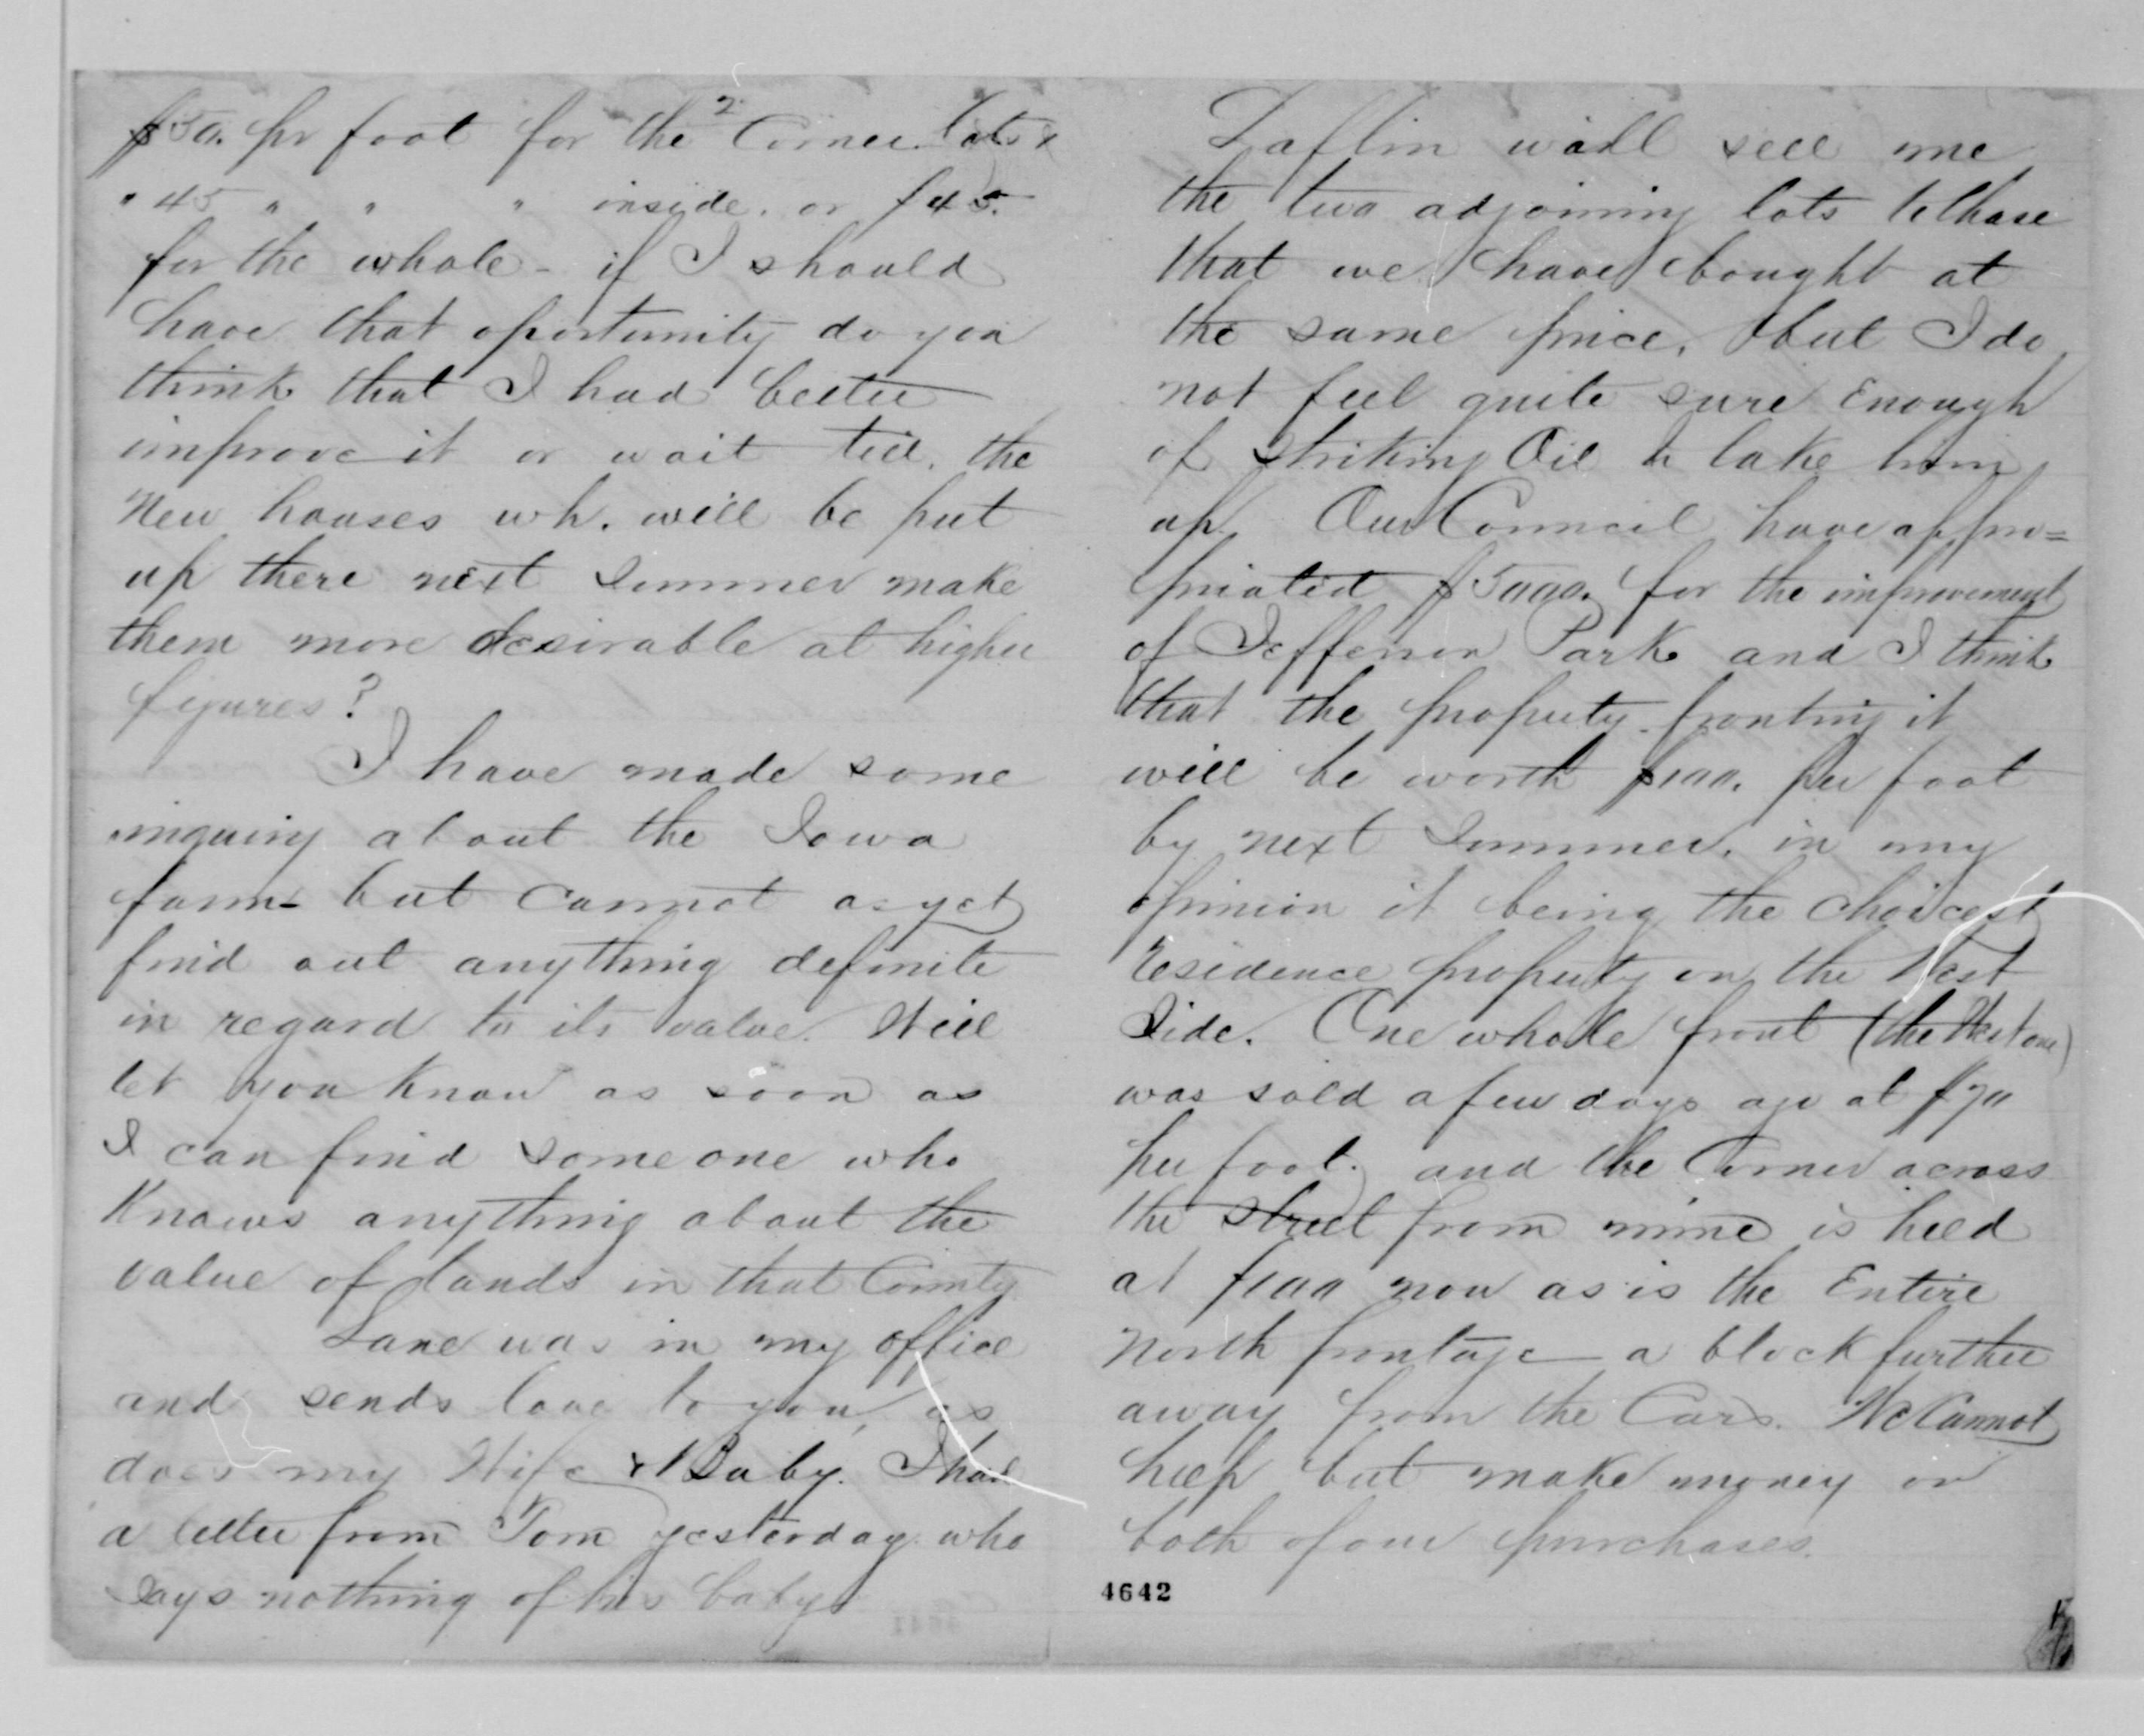 $50. pr foot for the 2 Corner Lots &
" 45 " " " inside. or $45.
for the whole - if I should
have that oportunity do you
think that I had better
improve it or wait till. the
New houses wh. will be put
up there next Summer make
them more desirable at higher
figures?
I have made some
inquiry about the Iowa
farm - but cannot as yet
find out anything definite
in regard to its value. Will
let you know as soon as
I can find some one who
Knows anything about the
value of lands in that County
Lane was in my office
and sends love to you, as
does my Wife & Baby. I had
a letter from Tom yesterday who
Says nothing of his baby
Laflin will sell me
the two adjoining lots to those
that we have bought at
the same price, but I do
not feel quite sure Enough
of Striking Oil to take him
up. Our Council have appro=
priated $5000. for the improvement
of Jefferson Park and I think
that the property fronting it
will be worth $100. per foot
by next Summer. in my
opinion it being the choicest
residence property on the West
Side. One whole front (the West one)
was sold a few days ago at $70
per foot. and the Corner across
the street from mine is held
at $100 now as is the Entire
North frontage - a block further
away from the Cars. We Cannot
help but make money on
both of our purchases.
4642